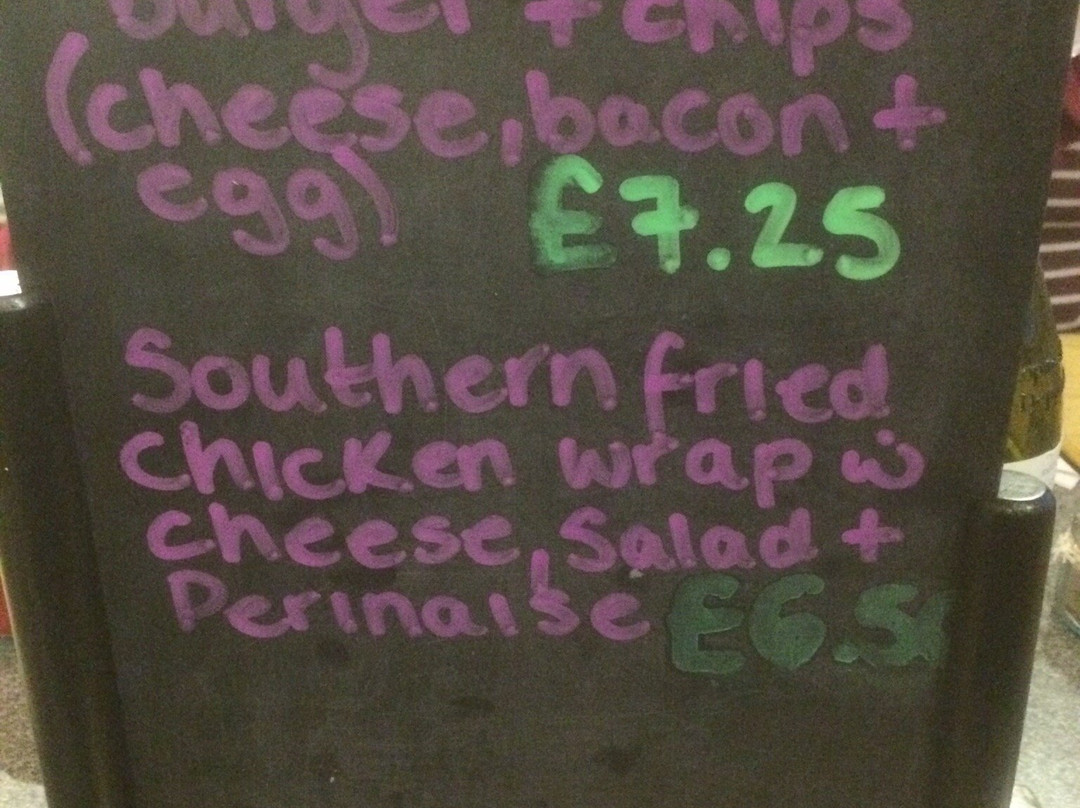 burger + chips
(cheese, bacon +
egg) £7.25
Southern fried
chicken wrap w
cheese, salad +
Perinaise £6.50